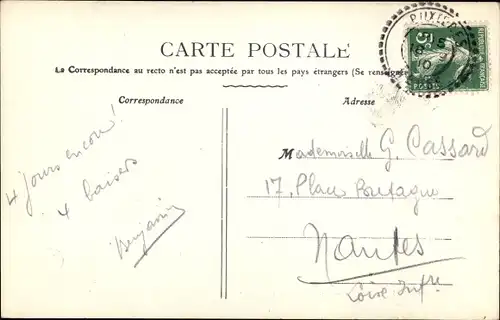 CARTE POSTALE
La Correspondance au recto n'est pas acceptée par tous les pays étrangers (Se renseigner
Correspondance
Adresse
5c
4 jours encore!
4 baisers
Benjamin
Mademoiselle G. Cassard
17, Place Bretagne
Nantes
Loire Infre